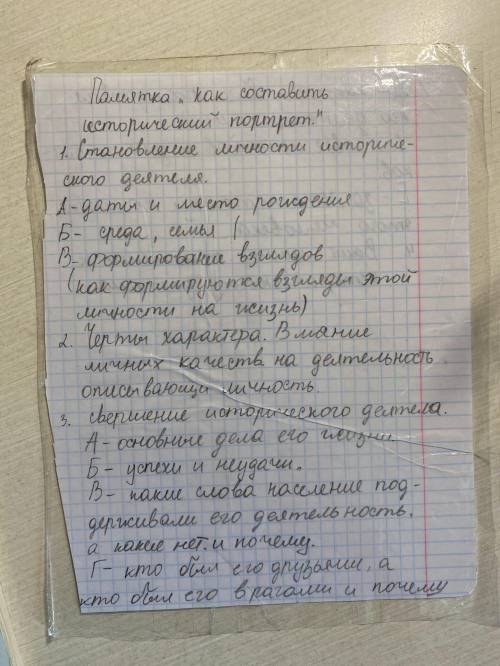 Памятка „как составить
исторический портрет."
1. Становление личности историче-
ского деятеля.
А- даты и место рождения
Б- среда, семья (
В- формирование взглядов
(как формируются взгляды этой
личности на жизнь)
2. Черты характера. Влияние
личных качеств на деятельность
описывающи личность.
3. свершение исторического деятела.
А- основные дела его жизни
Б- успехи и неудачи.
В- какие слова население под-
держивали его деятельность,
а какие нет. и почему.
Г- кто был его друзьями, а
кто был его врагами и почему